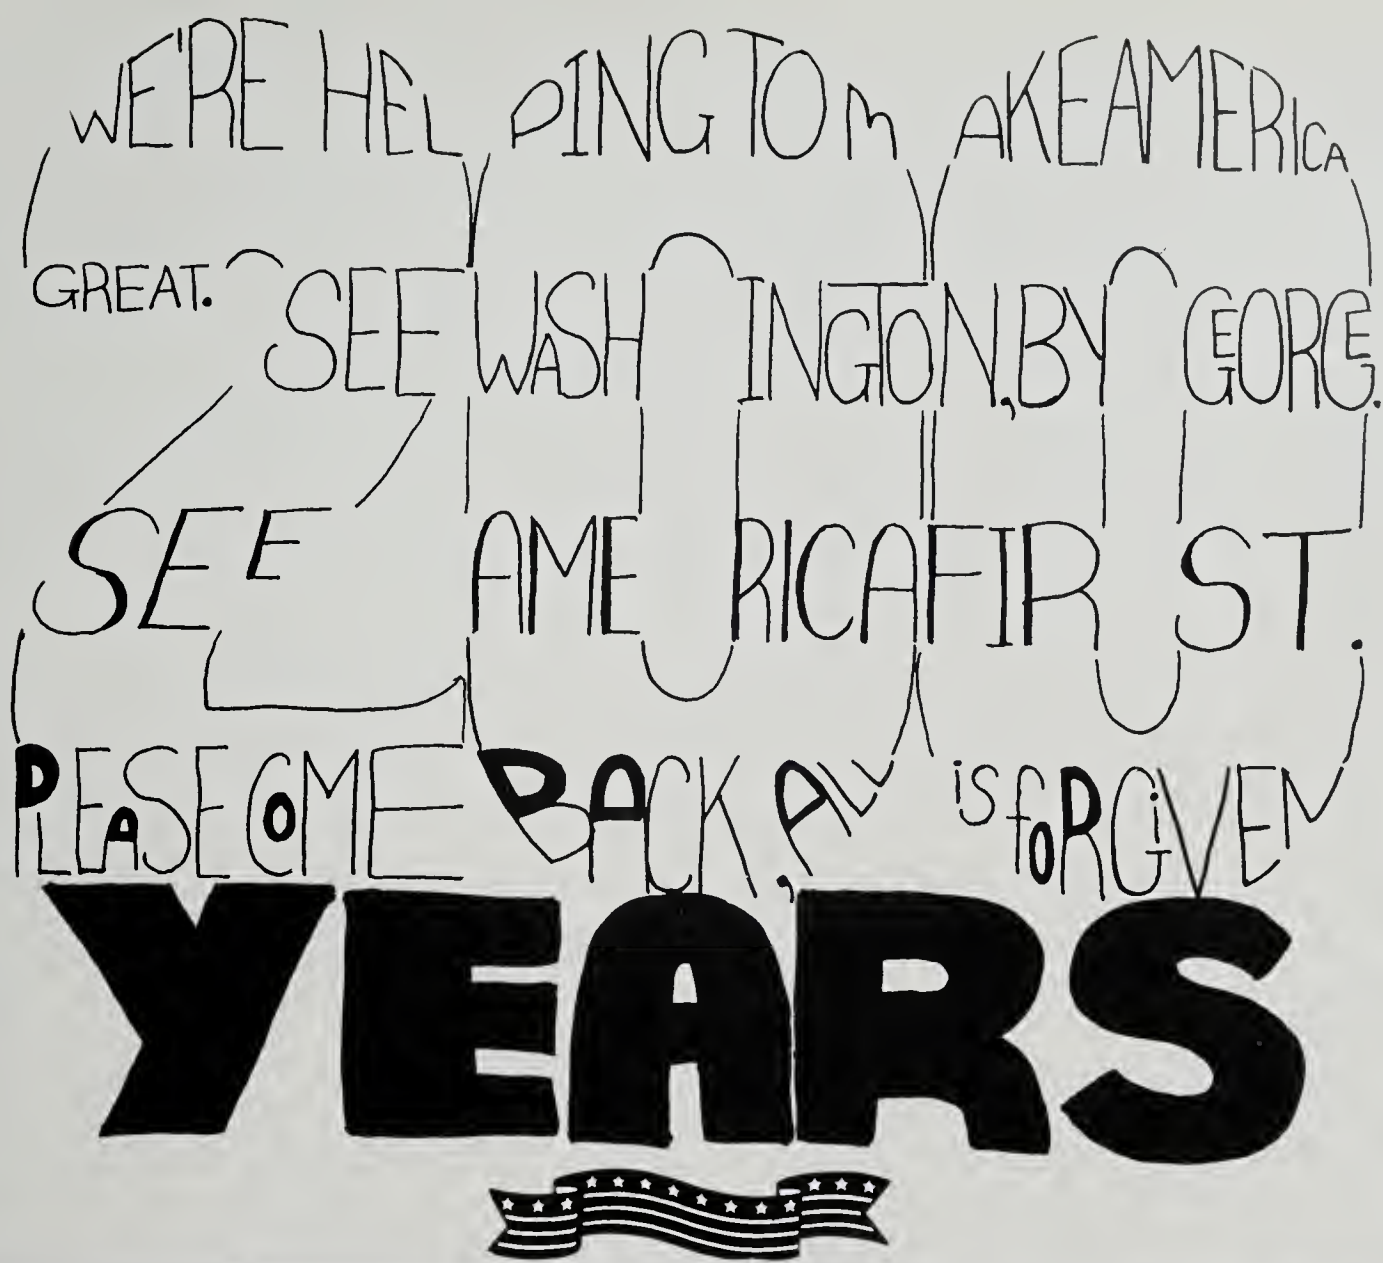 WE'RE HELPING TO MAKE AMERICA
GREAT. SEE WASHINGTON, BY GEORGE.
SEE AMERICA FIRST.
PLEASE COME BACK, ALL IS FORGIVEN
YEARS